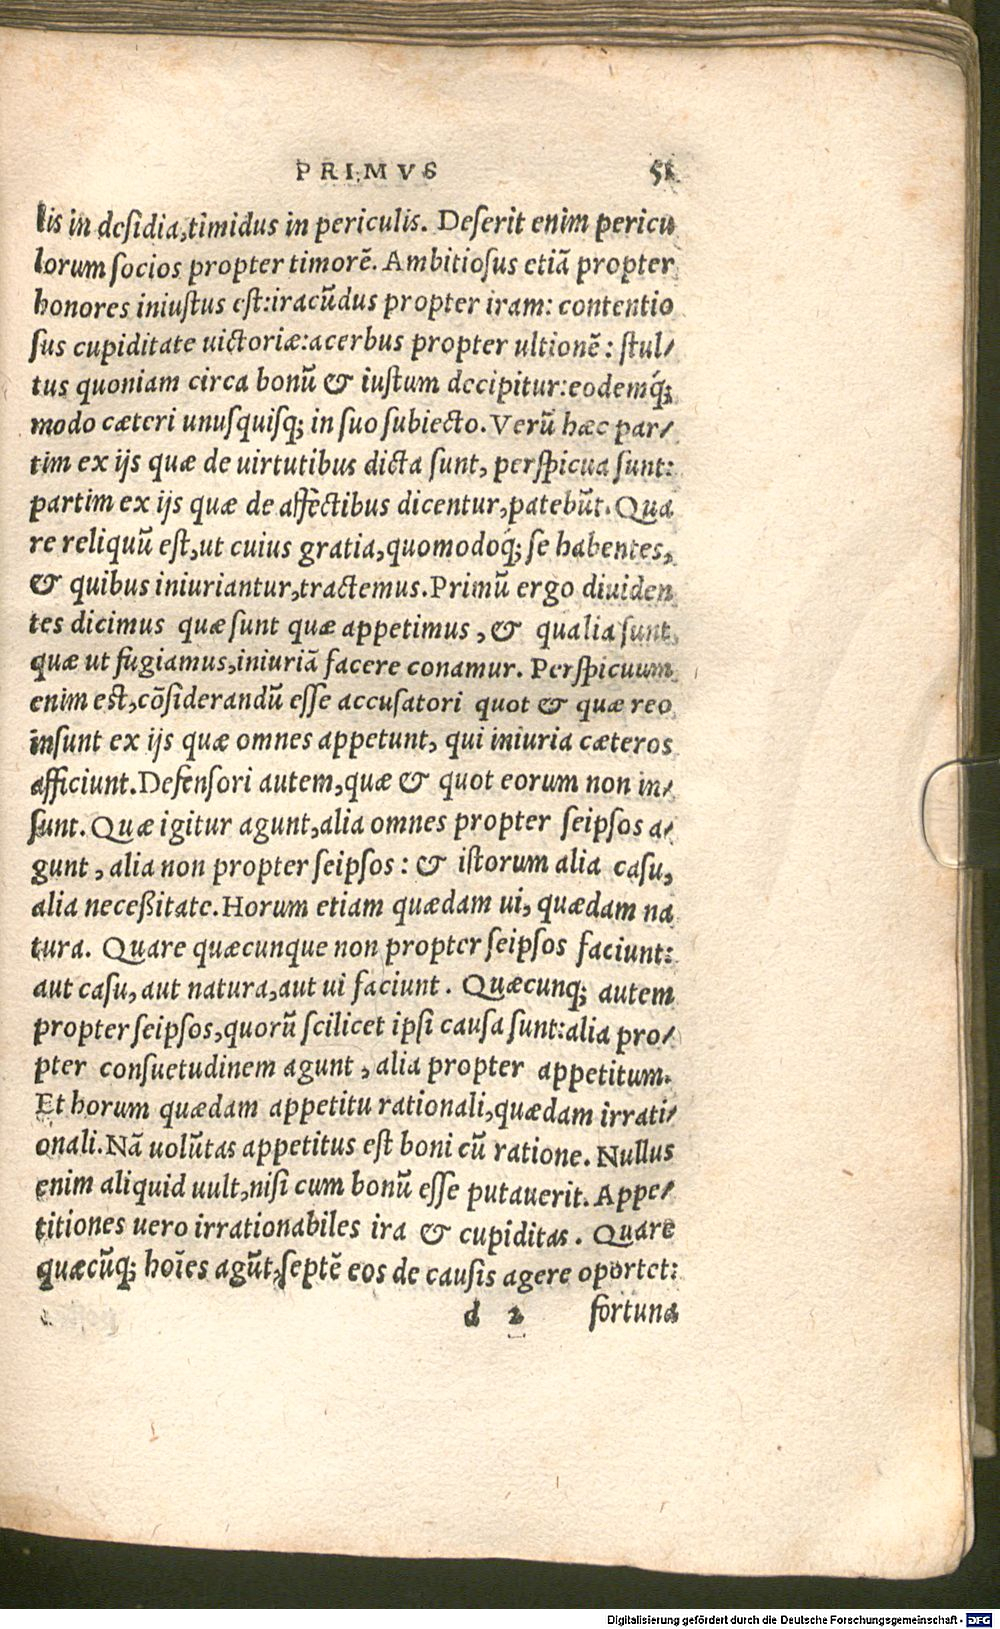 PRIMVS 51
lis in desidia, timidus in periculis. Deserit enim pericu
lorum socios propter timorē. Ambitiosus etiā propter
honores iniustus est: iracūdus propter iram: contentio
sus cupiditate uictoriæ: acerbus propter ultionē: stul/
tus quoniam circa bonū & iustum decipitur: eodemq́;
modo cæteri unusquisq; in suo subiecto. Verū hæc par/
tim ex ijs quæ de uirtutibus dicta sunt, perspicua sunt:
partim ex ijs quæ de affectibus dicentur, patebūt. Qua
re reliquū est, ut cuius gratia, quomodoq́; se habentes,
& quibus iniuriantur, tractemus. Primū ergo diuiden
tes dicimus quæ sunt quæ appetimus, & qualia sunt
quæ ut fugiamus, iniuriā facere conamur. Perspicuum
enim est, cōsiderandū esse accusatori quot & quæ reo
insunt ex ijs quæ omnes appetunt, qui iniuria cæteros
afficiunt. Defensori autem, quæ & quot eorum non in/
sunt. Quæ igitur agunt, alia omnes propter seipsos a/
gunt, alia non propter seipsos: & istorum alia casu,
alia neceßitate. Horum etiam quædam ui, quædam na
tura. Quare quæcunque non propter seipsos faciunt:
aut casu, aut natura, aut ui faciunt. Quæcunq; autem
propter seipsos, quorū scilicet ipsi causa sunt: alia pro/
pter consuetudinem agunt, alia propter appetitum.
Et horum quædam appetitu rationali, quædam irrati/
onali. Nā uolūtas appetitus est boni cū ratione. Nullus
enim aliquid uult, nisi cum bonū esse putauerit. Appe/
titiones uero irrationabiles ira & cupiditas. Quare
quæcūq; hoīes agūt, septē eos de causis agere oportet:
d 2 fortuna
Digitalisierung gefördert durch die Deutsche Forschungsgemeinschaft - DFG